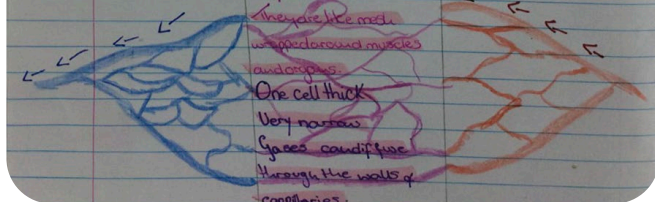 They are like mesh
wrapped around muscles
and organs.
One cell thick
Very narrow
Gases can diffuse
through the walls of
capillaries.